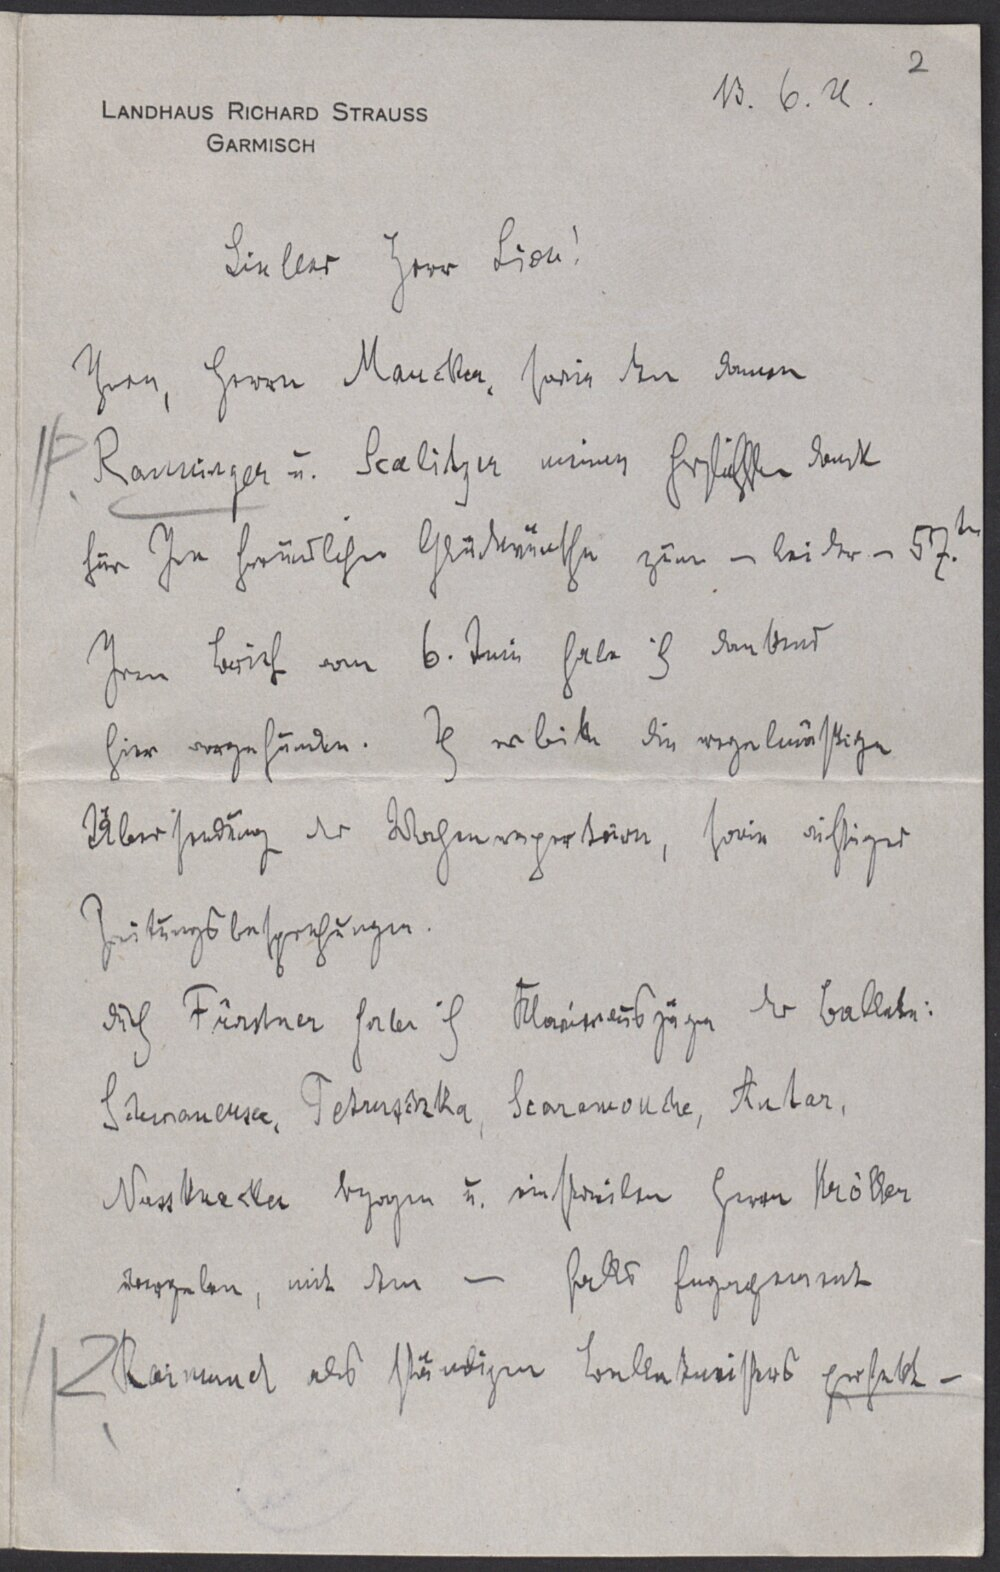 2
13. 6. 21.
LANDHAUS RICHARD STRAUSS
GARMISCH
Lieber Herr Lion!
Ihnen, Herrn Maucka, sowie den Damen
Ranninger u. Scalitzer meinen herzlichsten Dank
für Ihre freundlichen Glückwünsche zum – leider – 57.ten
Ihren Brief vom 6. Juni habe ich dankend
hier vorgefunden. Ich erbitte die regelmässige
Übersendung der Wochenrepertoire, sowie wichtiger
Zeitungsbesprechungen.
durch Fürstner habe ich Klavierauszüge der Ballette:
Schwanensee, Petruschka, Scaramouche, Antar,
Nussknacker bezogen u. einstweilen Herrn Kröller
übergeben, mit dem – falls Engagement
Raimund als ständigen Balletmeisters perfekt –